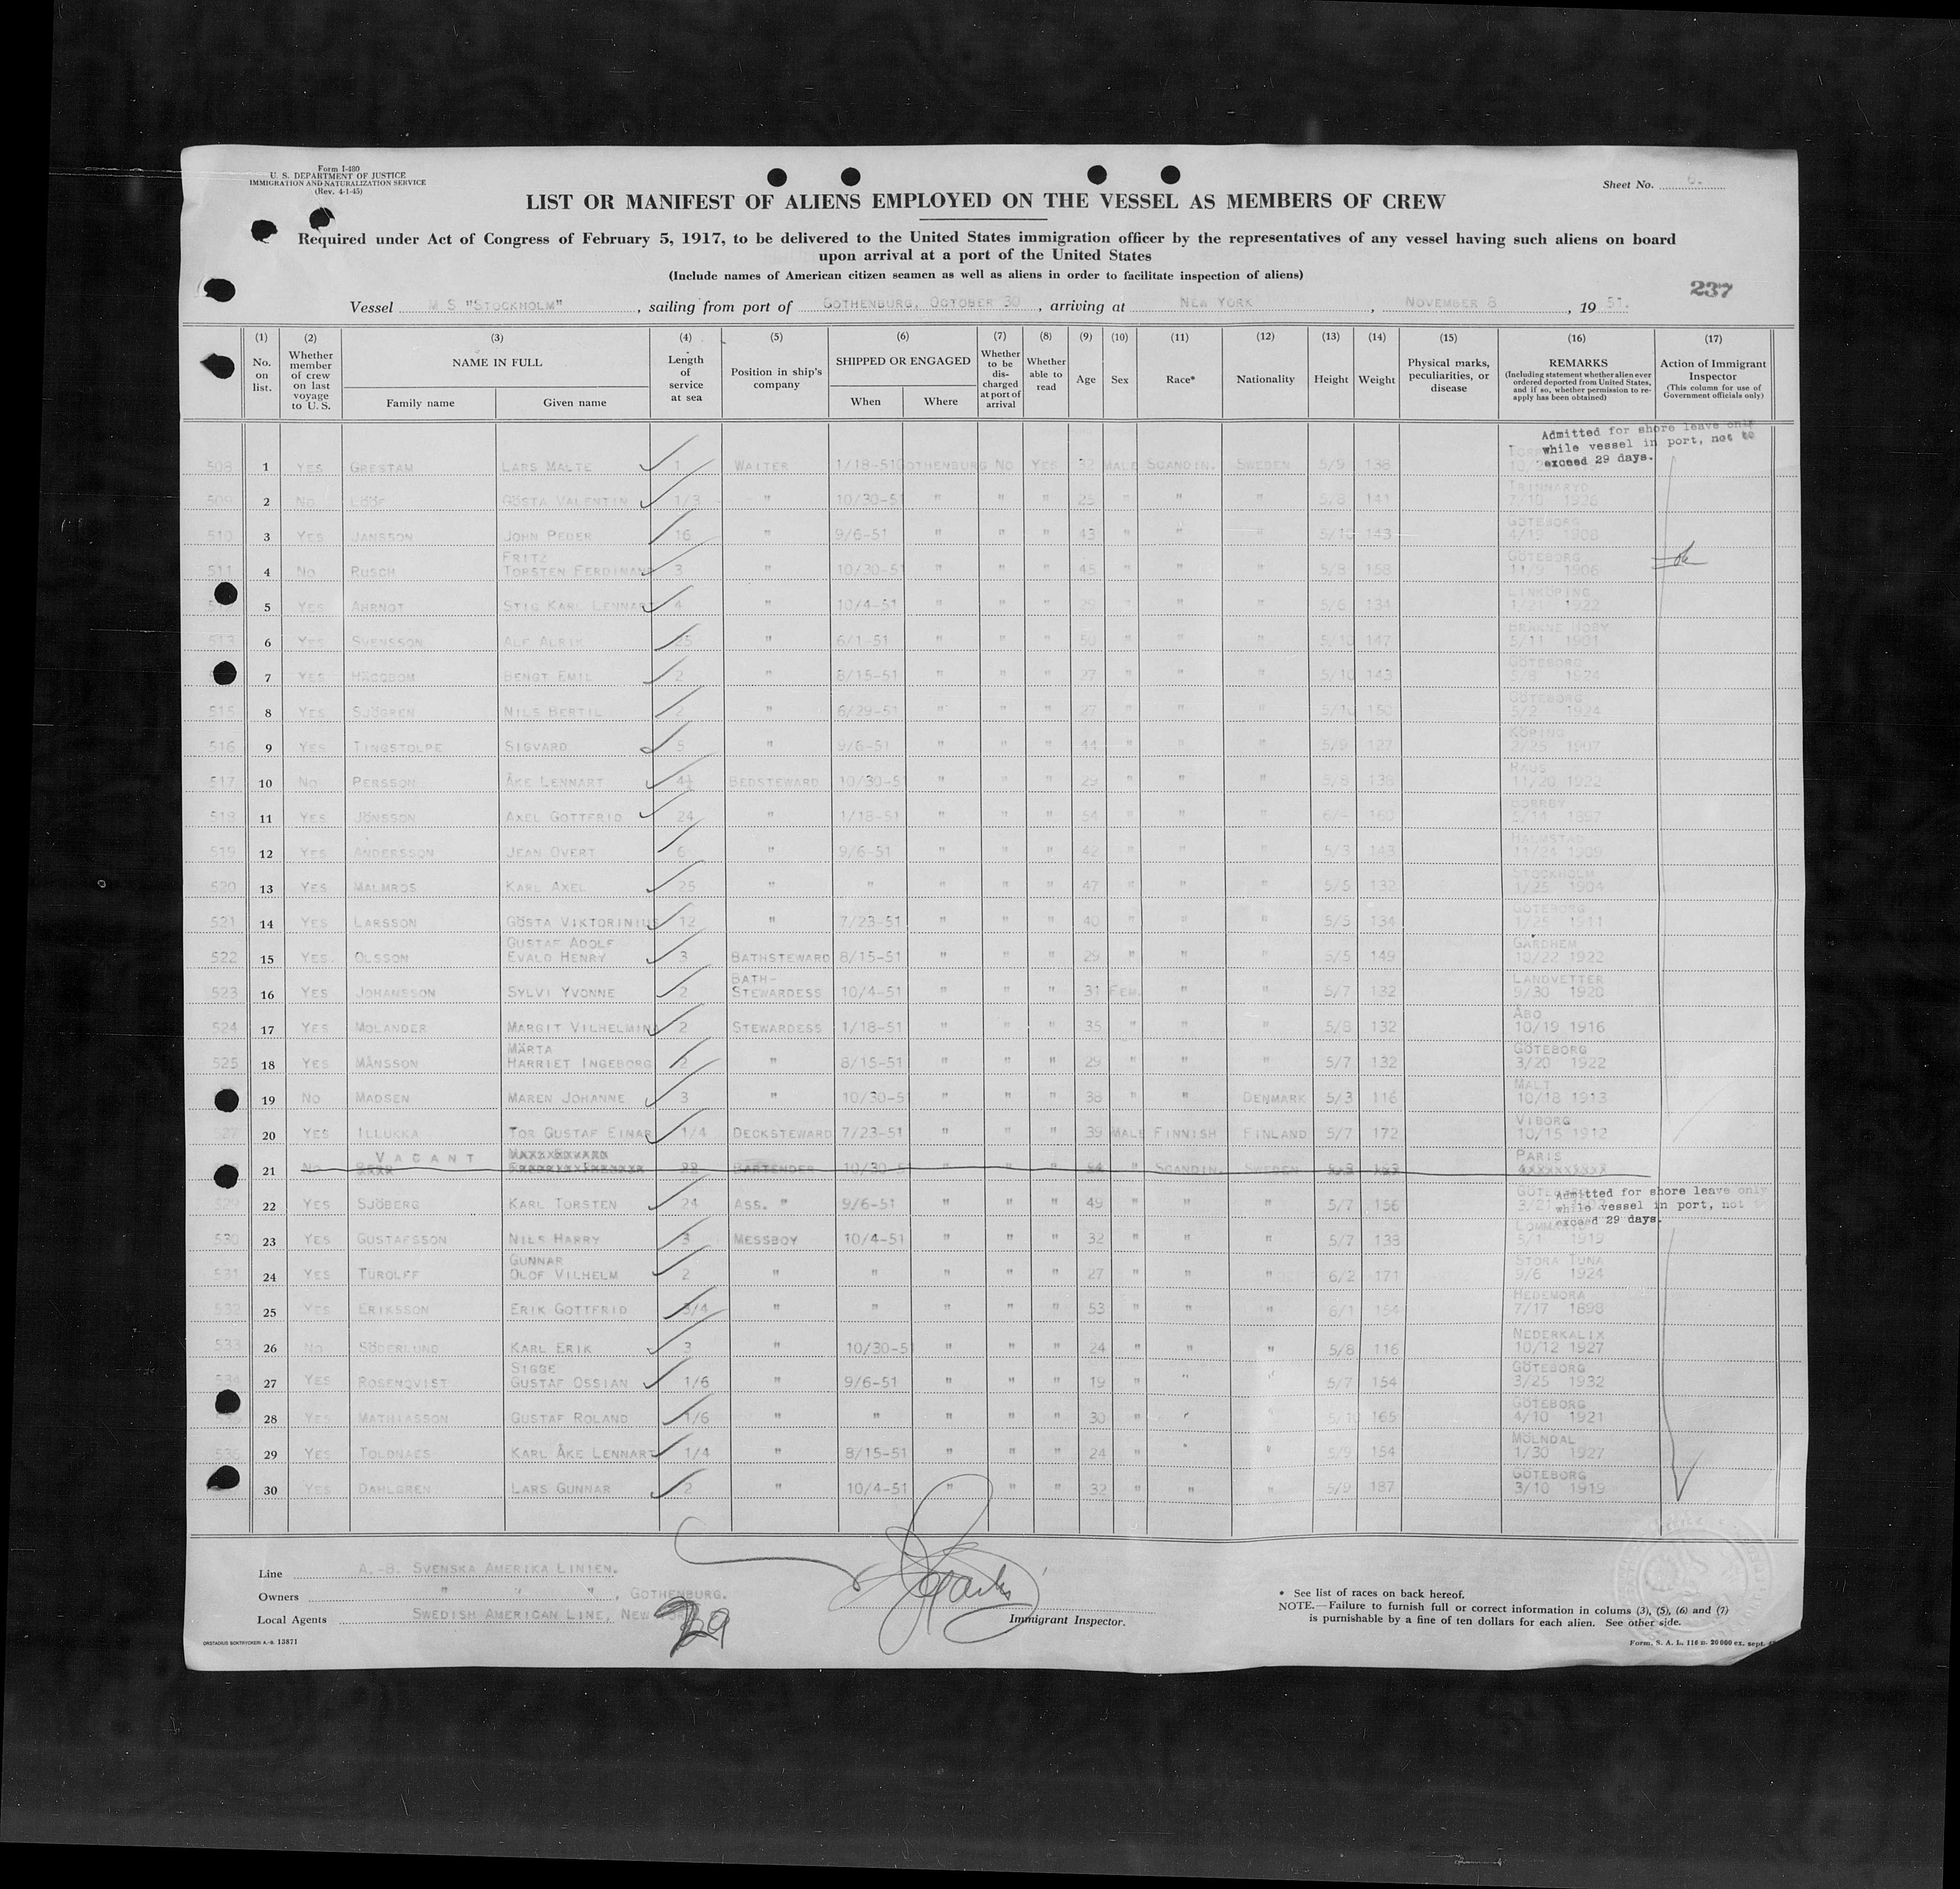 Form I-480
U. S. DEPARTMENT OF JUSTICE
IMMIGRATION AND NATURALIZATION SERVICE
(Rev. 4-1-45)
Sheet No. 6.
LIST OR MANIFEST OF ALIENS EMPLOYED ON THE VESSEL AS MEMBERS OF CREW
Required under Act of Congress of February 5, 1917, to be delivered to the United States immigration officer by the representatives of any vessel having such aliens on board
upon arrival at a port of the United States
(Include names of American citizen seamen as well as aliens in order to facilitate inspection of aliens)
237
Vessel M S "STOCKHOLM", sailing from port of GOTHENBURG, OCTOBER 30, arriving at NEW YORK, NOVEMBER 8, 1951.
(1) No. on list. (2) Whether member of crew on last voyage to U. S. (3) NAME IN FULL Family name Given name (4) Length of service at sea (5) Position in ship's company (6) SHIPPED OR ENGAGED When Where (7) Whether to be discharged at port of arrival (8) Whether able to read (9) Age (10) Sex (11) Race* (12) Nationality (13) Height (14) Weight (15) Physical marks, peculiarities, or disease (16) REMARKS (Including statement whether alien ever ordered deported from United States, and if so, whether permission to reapply has been obtained) (17) Action of Immigrant Inspector (This column for use of Government officials only)
Admitted for shore leave only
while vessel in port, not to
exceed 29 days.
508 1 YES GRESTAM LARS MALTE 1 WAITER GOTHENBURG NO YES MALE SCANDIN. SWEDEN 5/9 138
509 2 NO LÖÖF GÖSTA VALENTIN 1/3 " 10/30-51 " " " 25 " " " 5/8 141 7/10 1926
510 3 YES JANSSON JOHN PEDER 16 " 9/6-51 " " " 43 " " " 5/10 143 GÖTEBORG 4/19 1908
511 4 NO RUSCH FRITZ TORSTEN FERDINAND 3 " 10/30-51 " " " 45 " " " 5/8 158 GÖTEBORG 11/9 1906
5 YES AHRNOT STIG KARL LENNART 4 " 10/4-51 " " " 29 " " " 5/6 134 LINKÖPING 1/21 1922
513 6 YES SVENSSON ALF ALRIK 25 " 6/1-51 " " " 50 " " " 5/10 147 BRÄKNE HOBY 5/11 1901
7 YES HÄGGBOM BENGT EMIL 2 " 8/15-51 " " " 27 " " " 5/10 143 GÖTEBORG 5/8 1924
515 8 YES SJÖGREN NILS BERTIL 2 " 6/29-51 " " " 27 " " " 5/10 150 GÖTEBORG 5/2 1924
516 9 YES TINGSTOLPE SIGVARD 5 " 9/6-51 " " " 44 " " " 5/9 127 KÖPING 2/25 1907
517 10 NO PERSSON ÅKE LENNART 4½ BEDSTEWARD 10/30-5 " " " 29 " " " 5/8 138 RAUS 11/20 1922
518 11 YES JÖNSSON AXEL GOTTFRID 24 " 1/18-51 " " " 54 " " " 6/- 160 BORRBY 5/14 1897
519 12 YES ANDERSSON JEAN OVERT 6 " 9/6-51 " " " 42 " " " 5/3 143 HALMSTAD 11/24 1909
520 13 YES MALMROS KARL AXEL 25 " " " " " 47 " " " 5/5 132 STOCKHOLM 1/25 1904
521 14 YES LARSSON GÖSTA VIKTORINIUS 12 " 7/23-51 " " " 40 " " " 5/5 134 GÖTEBORG 1/25 1911
522 15 YES. OLSSON GUSTAF ADOLF EVALD HENRY 3 BATHSTEWARD 8/15-51 " " " 29 " " " 5/5 149 GÄRDHEM 10/22 1922
523 16 YES JOHANSSON SYLVI YVONNE 2 BATH-STEWARDESS 10/4-51 " " " 31 FEM. " " 5/7 132 LANDVETTER 9/30 1920
524 17 YES MOLANDER MARGIT VILHELMIN 2 STEWARDESS 1/18-51 " " " 35 " " " 5/8 132 ÅBO 10/19 1916
525 18 YES MÅNSSON MÄRTA HARRIET INGEBORG 2 " 8/15-51 " " " 29 " " " 5/7 132 GÖTEBORG 3/20 1922
19 NO MADSEN MAREN JOHANNE 3 " 10/30-5 " " " 38 " " DENMARK 5/3 116 MALT 10/18 1913
527 20 YES ILLUKKA TOR GUSTAF EINAR 1/4 DECKSTEWARD 7/23-51 " " " 39 MALE FINNISH FINLAND 5/7 172 VIBORG 10/15 1912
21 NO VACANT BARTENDER 10/30-5 " " " " SCANDIN. SWEDEN PARIS
529 22 YES SJÖBERG KARL TORSTEN 24 ASS. " 9/6-51 " " " 49 " " " 5/7 156
Admitted for shore leave only
while vessel in port, not to
exceed 29 days.
530 23 YES GUSTAFSSON NILS HARRY 3 MESSBOY 10/4-51 " " " 32 " " " 5/7 138 5/1 1919
531 24 YES TUROLFF GUNNAR OLOF VILHELM 2 " " " " " 27 " " " 6/2 171 STORA TUNA 9/6 1924
532 25 YES ERIKSSON ERIK GOTTFRID 3/4 " " " " " 53 " " " 6/1 154 HEDEMORA 7/17 1898
533 26 NO SÖDERLUND KARL ERIK 3 " 10/30-5 " " " 24 " " " 5/8 116 NEDERKALIX 10/12 1927
534 27 YES ROSENQVIST SIGGE GUSTAF OSSIAN 1/6 " 9/6-51 " " " 19 " " " 5/7 154 GÖTEBORG 3/25 1932
28 YES MATHIASSON GUSTAF ROLAND 1/6 " " " " " 30 " " " 5/10 165 GÖTEBORG 4/10 1921
536 29 YES TOLDNAES KARL ÅKE LENNART 1/4 " 8/15-51 " " " 24 " " " 5/9 154 MÖLNDAL 1/30 1927
30 YES DAHLGREN LARS GUNNAR 2 " 10/4-51 " " " 32 " " " 5/9 187 GÖTEBORG 3/10 1919
Line A.-B. SVENSKA AMERIKA LINIEN.
Owners " " ", GOTHENBURG.
Local Agents SWEDISH AMERICAN LINE, NEW YORK
29
Immigrant Inspector.
* See list of races on back hereof.
NOTE.—Failure to furnish full or correct information in colums (3), (5), (6) and (7)
is punishable by a fine of ten dollars for each alien. See other side.
ORSTADIUS BOKTRYCKERI A.-B. 13871
Form. S. A. L. 116 B. 20000 ex. sept.